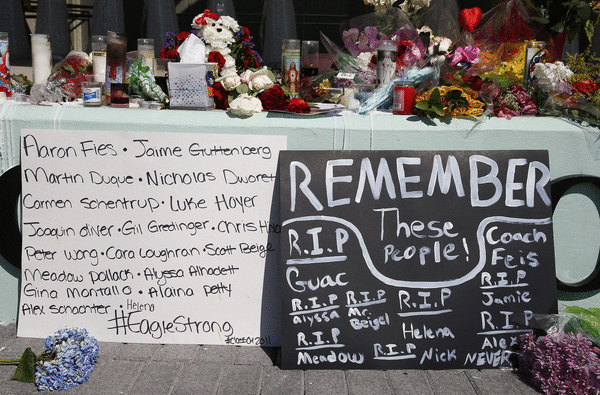 Aaron Fies • Jaime Guttenberg
Martin Duque • Nicholas Dworet
Carmen Schentrup • Luke Hoyer
Joaquin oliver • Gil Gredinger • Chris
Peter wang • Cara Loughran • Scott Beigel
Meadow pollack • Alyssa Alhadeff
Gina Montalto • Alaina Petty
Alex Schachter • Helena
#EagleStrong
#classOf 2011
REMEMBER
These
People!
R.I.P
Guac
R.I.P
alyssa
R.I.P
Mr.
Beigel
R.I.P
Helena
R.I.P
Meadow
R.I.P
Nick
Coach
Feis
R.I.P
Jamie
R.I.P
Alex
NEVER